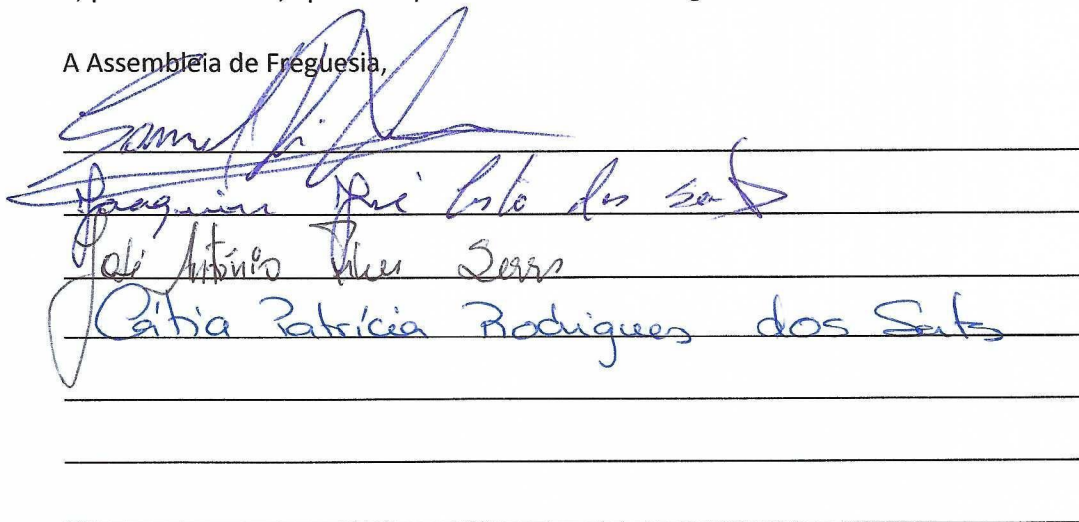 A Assembleia de Freguesia,
Samuel
Joaquim José Costa dos Santos
José António Serra
Cátia Patrícia Rodrigues dos Santos